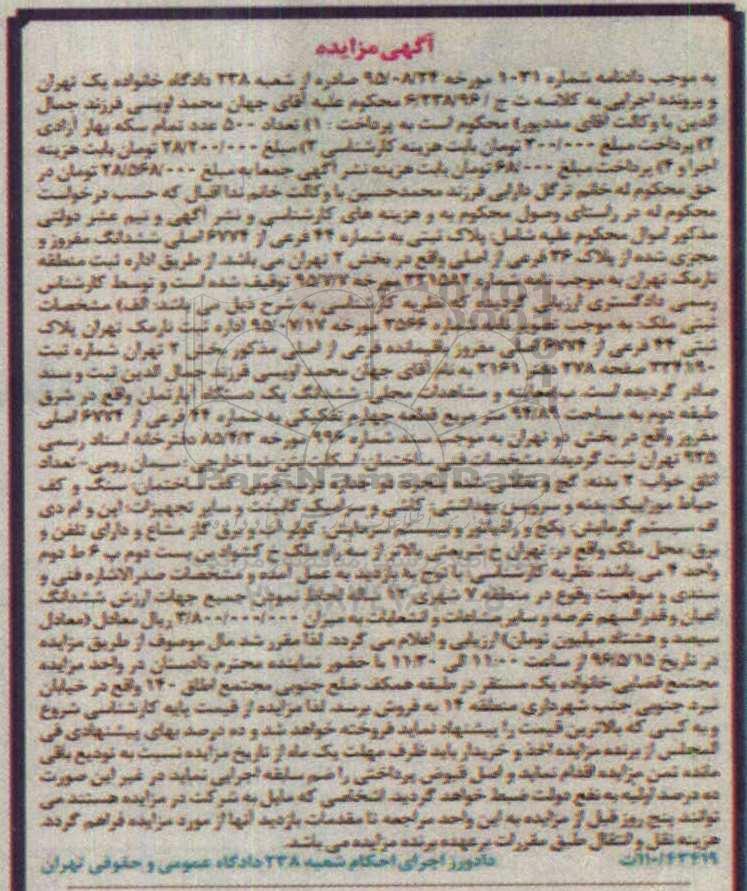 آگهی مزایده
به موجب دادنامه شماره ۱۰۳۱ مورخه ۹۵/۰۸/۲۴ صادره از شعبه ۲۳۸ دادگاه خانواده یک تهران
و پرونده اجرایی به کلاسه ت ج / ۶/۲۳۸/۹۶ محکوم علیه آقای جهان محمد اویسی فرزند جمال
الدین با وکالت آقای مددپور) محکوم است به پرداخت : ۱) تعداد ۵۰۰ عدد تمام سکه بهار آزادی
۲) پرداخت مبلغ ۳۰۰/۰۰۰ تومان بابت هزینه کارشناسی ۳) مبلغ ۲۸/۲۰۰/۰۰۰ تومان بابت هزینه
اجرا و ۴) پرداخت مبلغ ۶۸/۰۰۰ تومان بابت هزینه نشر آگهی جمعا به مبلغ ۲۸/۵۶۸/۰۰۰ تومان در
حق محکوم له خانم ترگل دارابی فرزند محمدحسین با وکالت خانم ندا اقبال که حسب درخواست
محکوم له در راستای وصول محکوم به و هزینه های کارشناسی و نشر آگهی و نیم عشر دولتی
مذکور اموال محکوم علیه شامل: پلاک ثبتی به شماره ۴۴ فرعی از ۶۷۷۴ اصلی ششدانگ مفروز و
مجزی شده از پلاک ۳۶ فرعی از اصلی واقع در بخش ۲ تهران می باشد. از طریق اداره ثبت منطقه
نارمک تهران به موجب نامه شماره توقیف شده است و توسط کارشناس
رسمی دادگستری ارزیابی گردیده که نظریه کارشناسی به شرح ذیل می باشد: الف) مشخصات
ثبتی ملک: به موجب تصویر نامه شماره ۲۵۶۶ مورخه ۹۵/۰۷/۱۷ اداره ثبت نارمک تهران پلاک
ثبتی ۴۴ فرعی از ۶۷۷۴ اصلی مفروز باقیمانده فرعی از اصلی مذکور بخش ۲ تهران شماره ثبت
۳۳۴۱۹۰ صفحه ۲۷۸ دفتر ۲۱۶۱ به نام آقای جهان محمد اویسی فرزند جمال الدین ثبت و سند
صادر گردیده است. ب) معاینه و مشاهدات محلی: ششدانگ یک دستگاه آپارتمان واقع در شرق
طبقه دوم به مساحت ۹۴/۸۹ متر مربع قطعه چهارم تفکیکی به شماره ۴۴ فرعی از ۶۷۷۴ اصلی
مفروز واقع در بخش دو تهران به موجب سند شماره ۹۹۶ مورخه ۸۵/۴/۳ دفترخانه اسناد رسمی
۹۳۵ تهران ثبت گردیده. مشخصات فنی ساختمان: اسکلت بتنی نما خارجی : سیمان رومی- تعداد
اتاق خواب: ۲ بدنه: گچ و نقاشی ساختمان سنگ و کف
حیاط موزاییک پخته و سرویس بهداشتی: کاشی و سرامیک کابینت و سایر تجهیزات: اپن و ام دی
اف سیستم گرمایش: پکیج و رادیاتور و سیستم سرمایش: کولر آب و برق گاز مشاع و دارای تلفن و
برق. محل ملک واقع در: تهران خ شریعتی بالاتر از سه راه ملک خ کشواد بن بست دوم پ ۶ ط دوم
واحد ۴ می باشد. نظریه کارشناسی: با توجه به بازدید به عمل آمده و مشخصات صدرالاشاره فنی و
سندی و موقعیت وقوع در منطقه ۷ شهری ۱۲ ساله لحاظ نمودن جمیع جهات ارزش ششدانگ
اعیان و قدرالسهم عرصه و سایر مشاعات و انشعابات به میزان ۳/۸۰۰/۰۰۰/۰۰۰ ریال معادل (معادل
سیصد و هشتاد میلیون تومان) ارزیابی و اعلام می گردد. لذا مقرر شد مال موصوف از طریق مزایده
در تاریخ ۹۶/۵/۱۵ از ساعت ۱۱:۰۰ الی ۱۱:۳۰ با حضور نماینده محترم دادستان در واحد مزایده
مجتمع قضایی خانواده یک مستقر در طبقه همکف ضلع جنوبی مجتمع اطاق ۱۴۰ واقع در خیابان
سرد جنوبی جنب شهرداری منطقه ۱۴ به فروش برسد. لذا مزایده از قیمت پایه کارشناسی شروع
و به کسی که بالاترین قیمت را پیشنهاد نماید فروخته خواهد شد و ده درصد بهای پیشنهادی فی
المجلس از برنده مزایده اخذ و خریدار باید ظرف مهلت یک ماه از تاریخ مزایده نسبت به تودیع باقی
مانده ثمن مزایده اقدام نماید و اصل قبوض پرداختی را ضم سابقه اجرایی نماید در غیر این صورت
ده درصد اولیه به نفع دولت ضبط خواهد گردید. اشخاصی که مایل به شرکت در مزایده هستند می
توانند پنج روز قبل از مزایده به این واحد مراجعه تا مقدمات بازدید آنها از مورد مزایده فراهم گردد.
هزینه نقل و انتقال طبق مقررات برعهده برنده مزایده می باشد.
۱۱۰/۶۳۴۱۹ت دادورز اجرای احکام شعبه ۲۳۸ دادگاه عمومی و حقوقی تهران
ParsNamadData